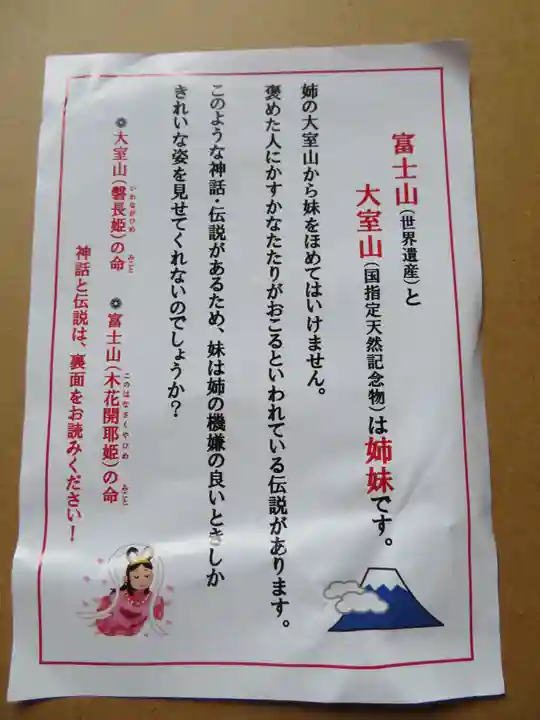 富士山（世界遺産）と
大室山（国指定天然記念物）は姉妹です。
姉の大室山から妹をほめてはいけません。
褒めた人にかすかなたたりがおこるといわれている伝説があります。
このような神話・伝説があるため、妹は姉の機嫌の良いときしか
きれいな姿を見せてくれないのでしょうか？
大室山（磐長姫）の命
いわながひめ
みこと
富士山（木花開耶姫）の命
このはなさくやひめ
みこと
神話と伝説は、裏面をお読みください！